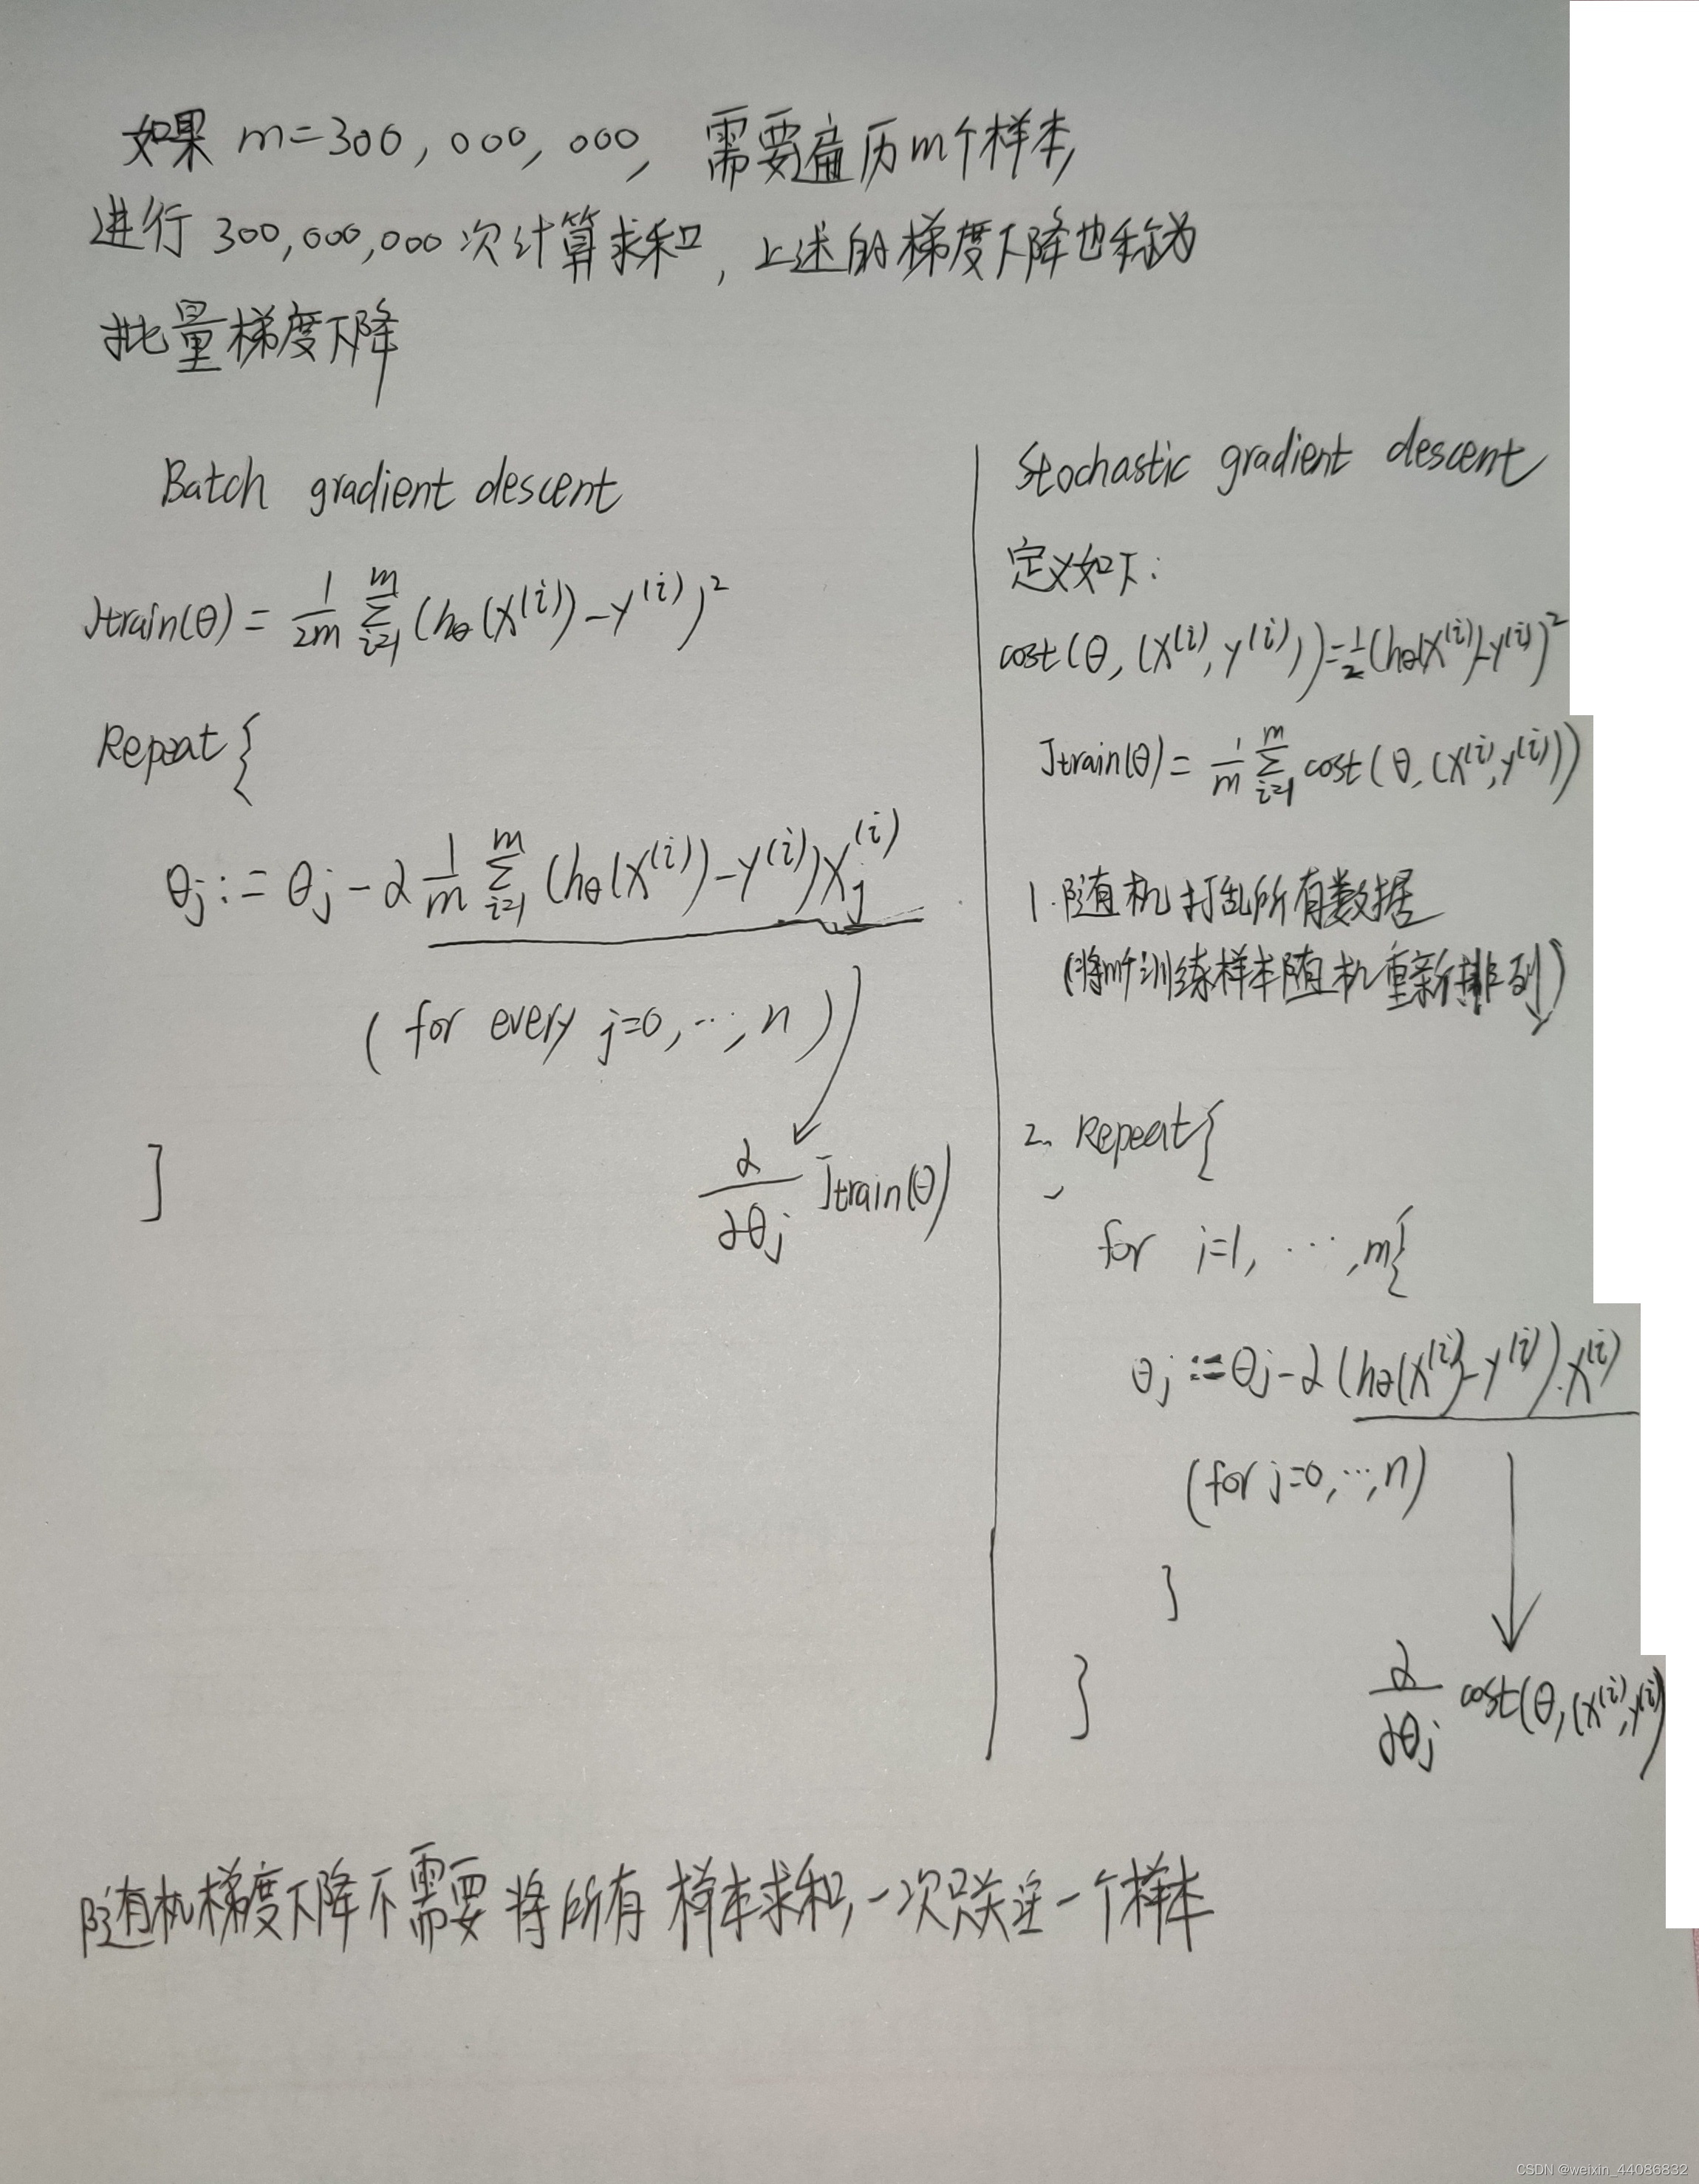 如果 m=300,000,000, 需要遍历m个样本,
进行 300,000,000 次计算求和, 上述的梯度下降也称为
批量梯度下降
Batch gradient descent
Jtrain(θ) = 1/2m Σ_{i=1}^{m} (hθ(x^(i)) - y^(i))²
Repeat {
θj := θj - α 1/m Σ_{i=1}^{m} (hθ(x^(i)) - y^(i)) xj^(i)
( for every j=0, ..., n )
}
∂/∂θj Jtrain(θ)
Stochastic gradient descent
定义如下:
cost(θ, (x^(i), y^(i))) = 1/2 (hθ(x^(i)) - y^(i))²
Jtrain(θ) = 1/m Σ_{i=1}^{m} cost(θ, (x^(i), y^(i)))
1. 随机打乱所有数据
(将m个训练样本随机重新排列)
2. Repeat {
for i=1, ..., m{
θj := θj - α (hθ(x^(i)) - y^(i)) · x^(i)
(for j=0, ..., n)
}
}
∂/∂θj cost(θ, (x^(i), y^(i))
随机梯度下降不需要将所有样本求和, 一次只关注一个样本
CSDN @weixin_44086832